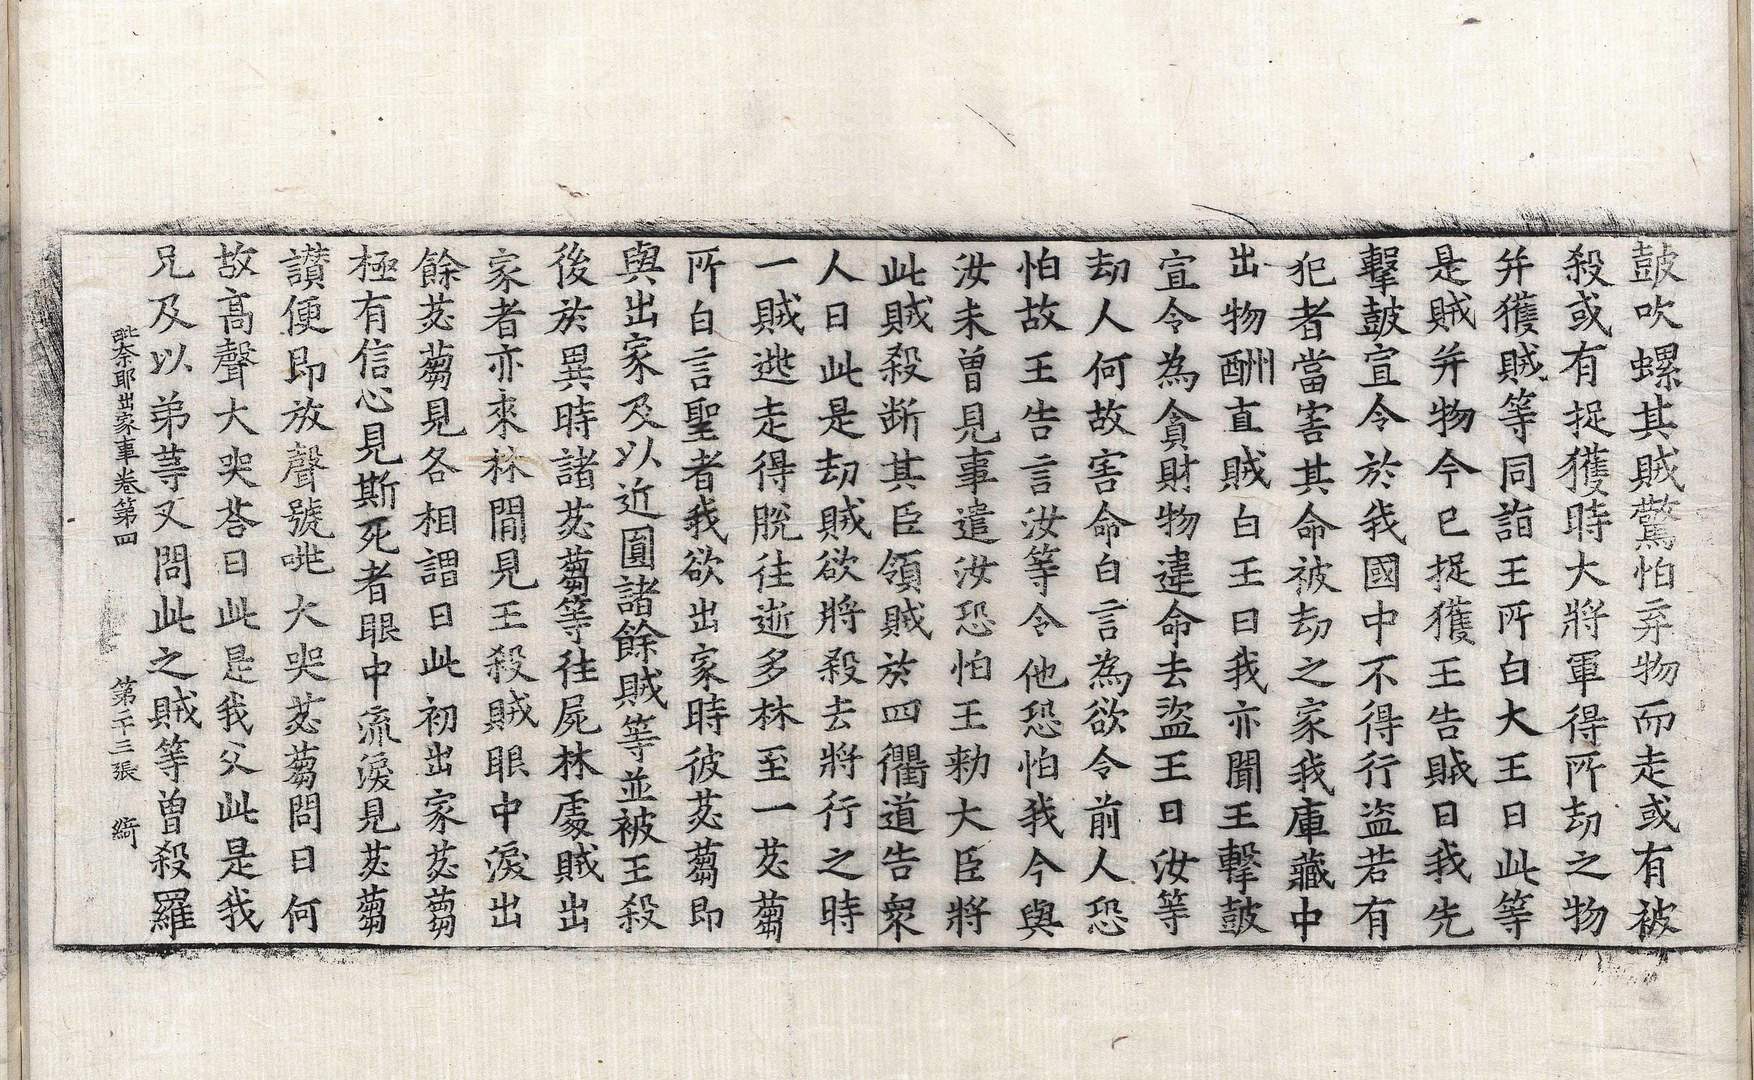 鼓吹螺其賊驚怕弃物而走或有被
殺或有捉獲時大將軍得所劫之物
并獲賊等同詣王所白大王曰此等
是賊并物今已捉獲王告賊曰我先
擊鼓宣令於我國中不得行盜若有
犯者當害其命被劫之家我庫藏中
出物酬直賊白王曰我亦聞王擊鼓
宣令為貪財物違命去盜王曰汝等
劫人何故害命白言為欲令前人恐
怕故王告言汝等令他恐怕我今與
汝未曾見事遣汝恐怕王勑大臣將
此賊殺断其臣領賊於四衢道告衆
人曰此是劫賊欲將殺去將行之時
一賊逃走得脫往逝多林至一苾蒭
所白言聖者我欲出家時彼苾蒭即
與出家及以近圓諸餘賊等並被王殺
後於異時諸苾蒭等往屍林處賊出
家者亦來林閒見王殺賊眼中淚出
餘苾蒭見各相謂曰此初出家苾蒭
極有信心見斯死者眼中流淚見苾蒭
讃便即放聲號咷大哭苾蒭問曰何
故高聲大哭荅曰此是我父此是我
兄及以弟等又問此之賊等曽殺羅
毗奈耶出家事卷第四 第十三張 綺